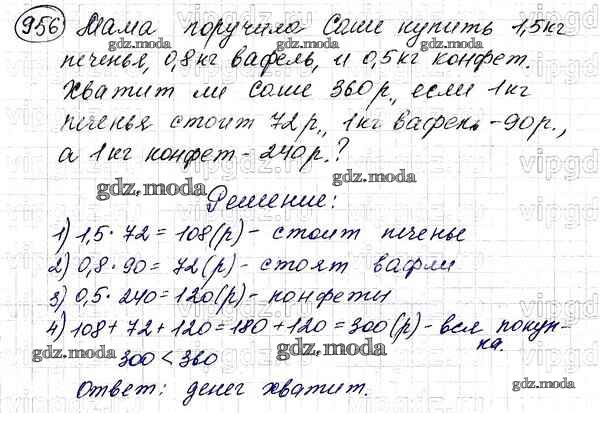 956 Мама поручила Саше купить 1,5кг
печенья, 0,8кг вафель, и 0,5кг конфет.
Хватит ли Саше 360р., если 1кг
печенья стоит 72р., 1кг вафель-90р.,
а 1кг конфет-240р.?
Решение:
1) 1,5·72=108(р)-стоит печенье
2) 0,8·90=72(р)-стоят вафли
3) 0,5·240=120(р)-конфеты
4) 108+72+120=180+120=300(р)-вся покуп-
ка.
300<360
Ответ: денег хватит.
gdz.moda
gdz.moda
gdz.moda
gdz.moda
gdz.moda
gdz.moda
gdz.moda
gdz.moda
gdz.moda
gdz.moda